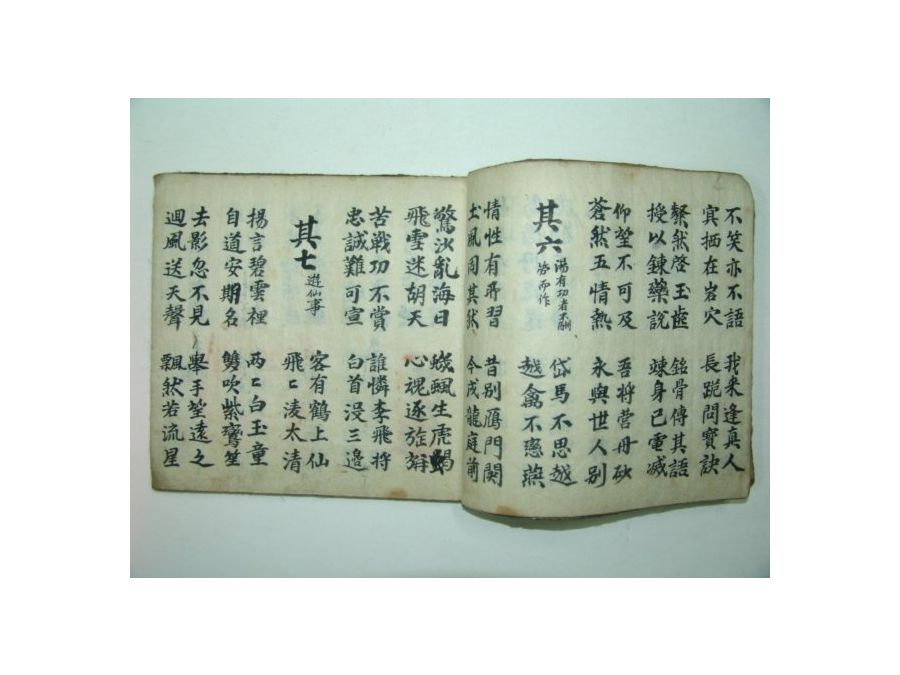 不笑亦不語
冥栖在岩穴
我来逢真人
長跪問寶訣
粲然啓玉齒
授以鍊藥說
銘骨傳其語
竦身已電滅
仰望不可及
蒼然五情熱
吾将營丹砂
永與世人別
其六
湯有功者不酬
為而作
岱馬不思越
越禽不戀燕
情性有所習
土風固其然
昔別鴈門関
今戍龍庭前
驚沙亂海日
飛雪迷胡天
蟣蝨生虎鶡
心魂逐旌旃
苦戰功不賞
忠誠難可宣
誰憐李飛将
白首没三邊
其七
遊仙事
客有鶴上仙
飛〻凌太清
揚言碧雲裡
自道安期名
兩〻白玉童
雙吹紫鸞笙
去影忽不見
迴風送天聲
舉手望遠之
飄然若流星